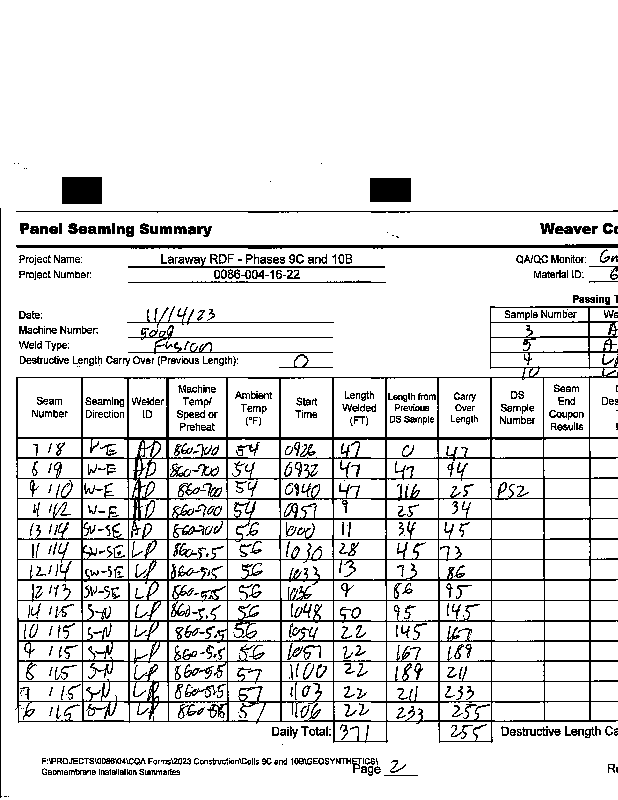 Panel Seaming Summary Weaver Co
Project Name: Laraway RDF - Phases 9C and 10B QA/QC Monitor: Gm
Project Number: 0086-004-16-22 Material ID: 6
Passing T
Date: 11/14/23 Sample Number We
Machine Number: 5009 3 A
Weld Type: Fusion 5 A
Destructive Length Carry Over (Previous Length): 0 9 L
10
Seam Number Seaming Direction Welder ID Machine Temp/ Speed or Preheat Ambient Temp (°F) Start Time Length Welded (FT) Length from Previous DS Sample Carry Over Length DS Sample Number Seam End Coupon Results D Des
7 / 8 W-E AD 860-700 54 0926 47 0 47
8 / 9 W-E AD 860-700 54 0932 47 47 94
9 / 10 W-E AD 860-700 54 0940 47 116 25 PS2
W-E AD 860-700 54 0957 9 25 34
13 / 14 SW-SE AD 860-700 56 1000 11 34 45
11 / 14 SW-SE LP 860-5.5 56 1030 28 45 73
12 / 14 SW-SE LP 860-5.5 56 1033 13 73 86
12 / 13 SW-SE LP 860-5.5 56 1036 9 86 95
14 / 15 S-N LP 860-5.5 56 1048 50 95 145
10 / 15 S-N LP 860-5.5 56 1054 22 145 167
9 / 15 S-N LP 860-5.5 56 1057 22 167 189
8 / 15 S-N LP 860-5.5 57 1100 22 189 211
7 / 15 S-N LP 860-5.5 57 1103 22 211 233
6 / 15 S-N LP 860-5.5 57 1106 22 233 255
Daily Total: 371 255 Destructive Length Ca
F:\PROJECTS\0086\04\CQA Forms\2023 Construction\Cells 9C and 10B\GEOSYNTHETICS\
Geomembrane Installation Summaries Page 2 Re